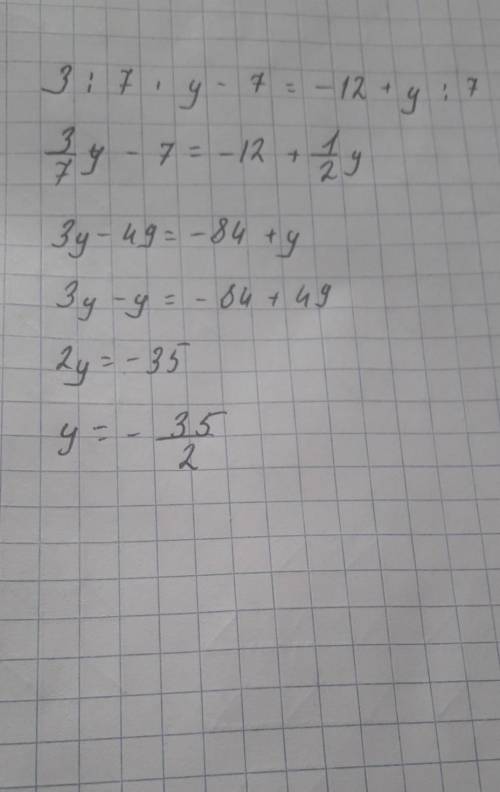 3 : 7 · y - 7 = -12 + y : 7
3/7 y - 7 = -12 + 1/2 y
3y - 49 = -84 + y
3y - y = -84 + 49
2y = -35
y = - 35/2